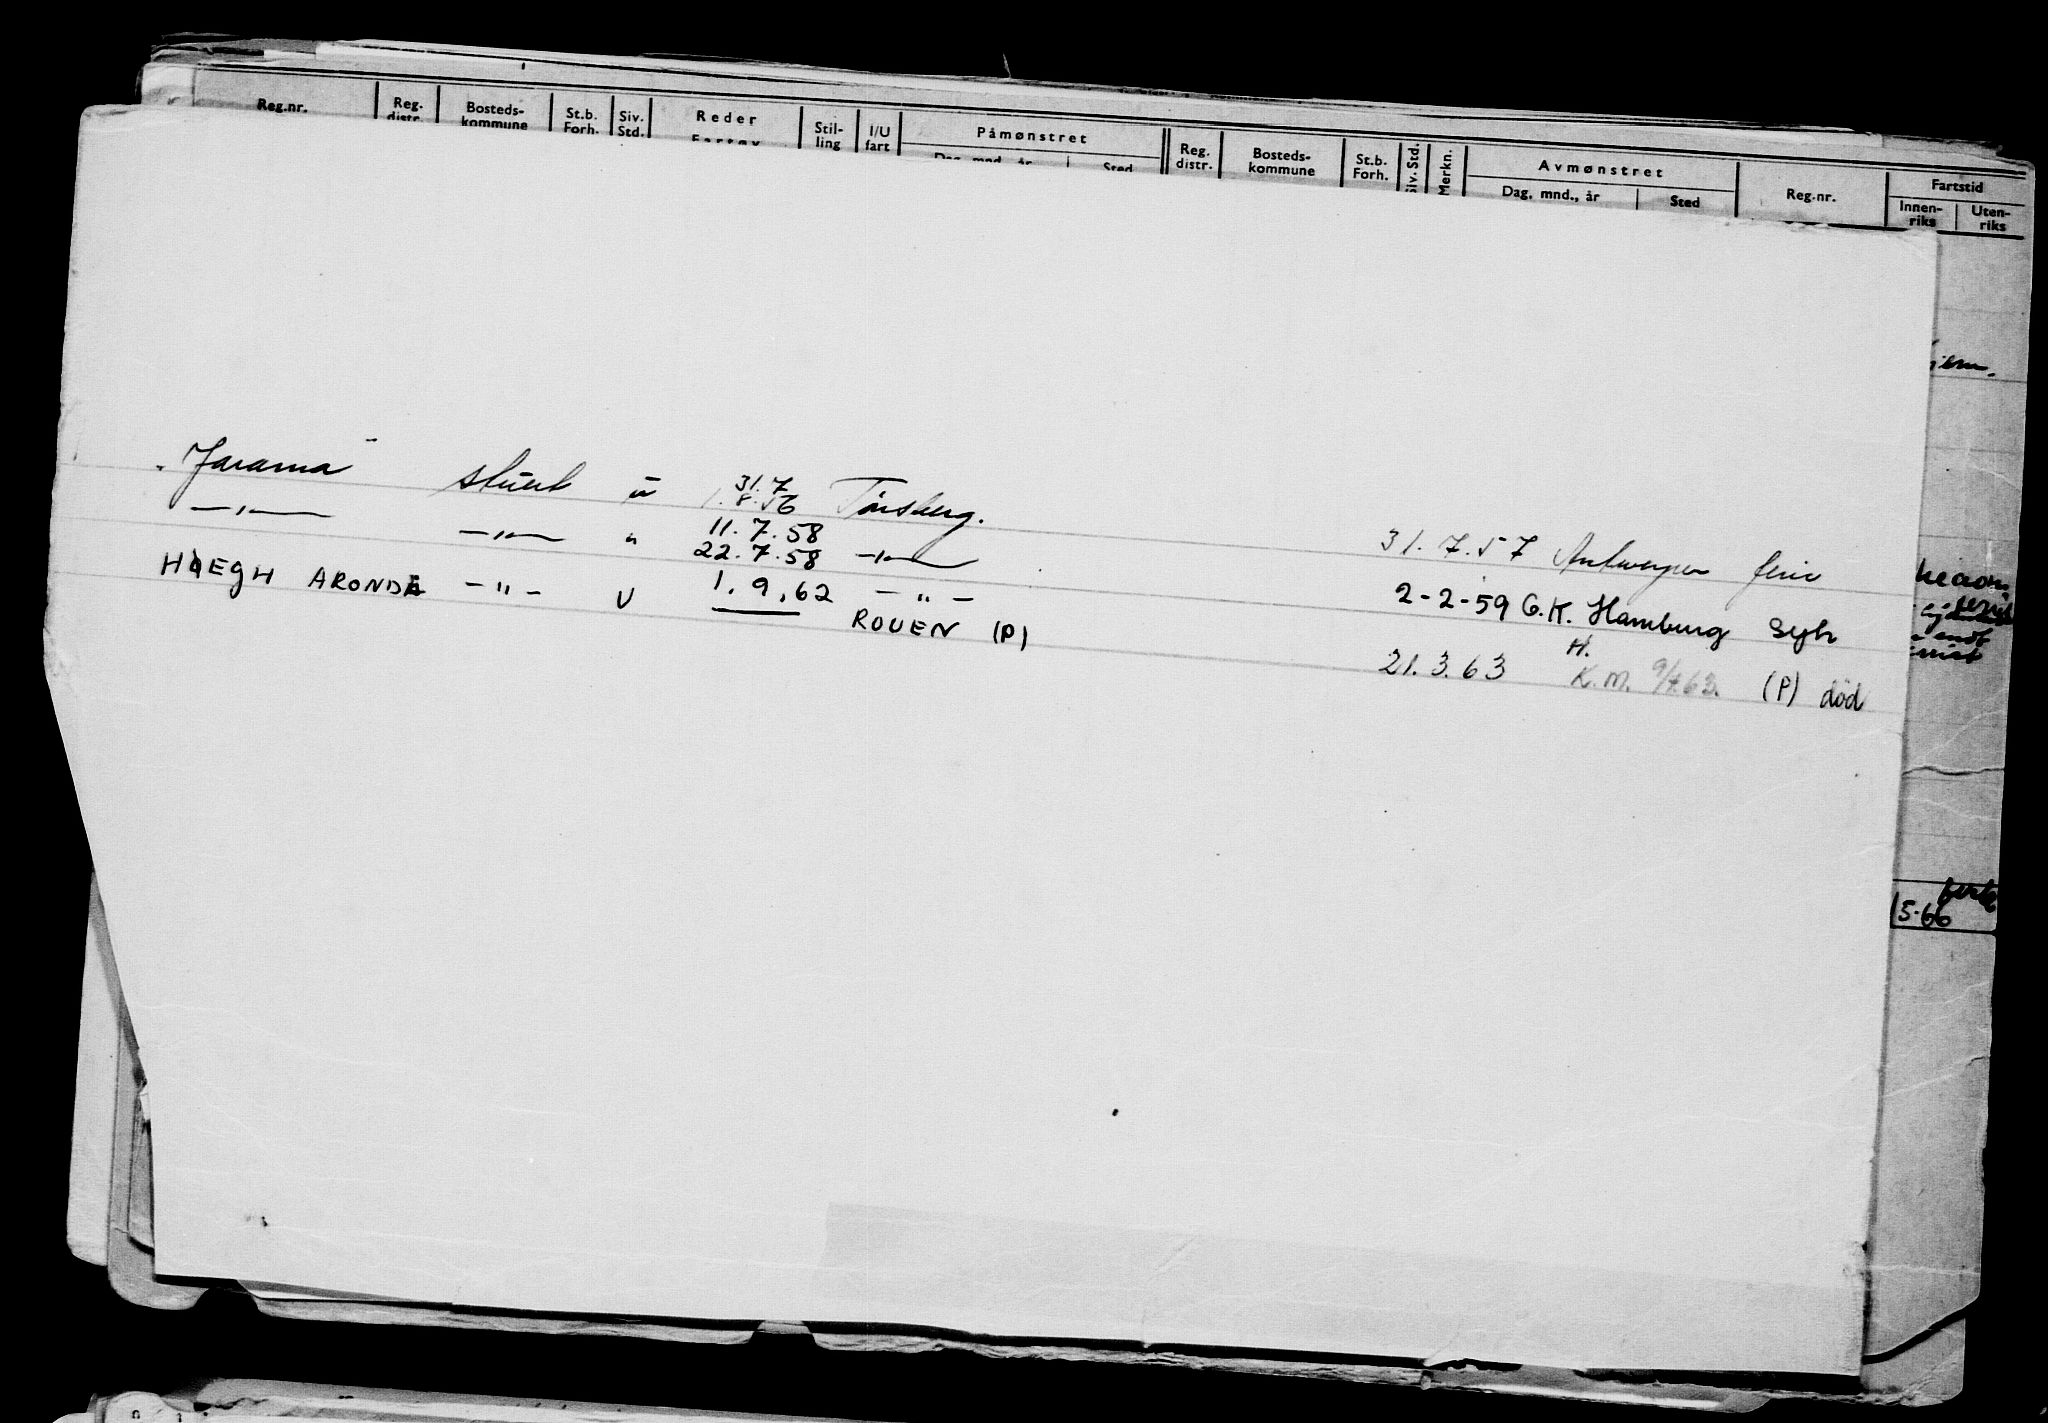 Reg.nr. Reg. distr. Bosteds- kommune St.b. Forh. Siv. Std. Reder Fartøy Stil- ling I/U fart Påmønstret Dag, mnd., år Sted Reg. distr. Bosteds- kommune St.b. Forh. Siv. Std. Merkn. Avmønstret Dag, mnd., år Sted Reg.nr. Fartstid Innen- riks Uten- riks
"Jarama" stuert u 31.7
1.8.56 Tönsberg. 31.7.57 Antwerpen ferie
—"— —"— " 11.7.58
22.7.58 —"— 2-2-59 G.K. Hamburg syk
HØEGH ARONDE -"- U 1.9.62 -"-
ROUEN (P) 21.3.63 H.
K.M. 9/4.63. (P) död
15-66